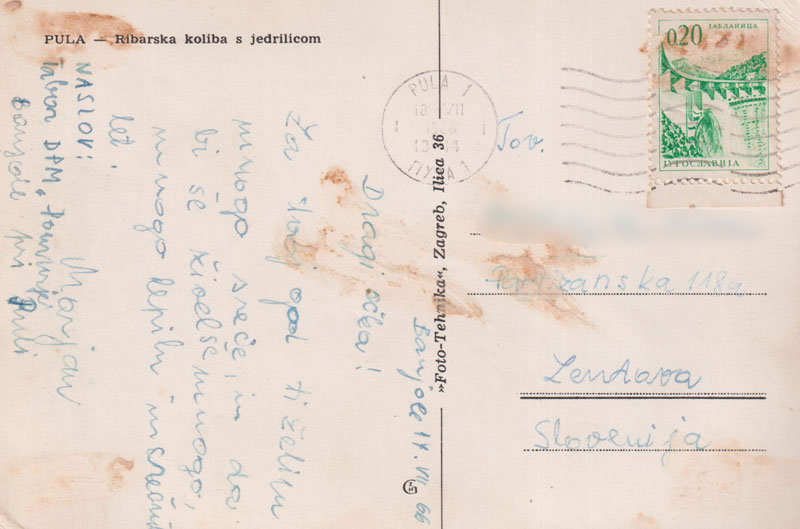 PULA — Ribarska koliba s jedrilicom
Banjole 17. VII 66
Dragi očka!
Za tvoj god ti želim
mnogo sreče, in da
bi še živel še mnogo,
mnogo lepih in srečnih
let.
Marjan
NASLOV:
Tabor DPM, Pomurje
Banjole pri Puli
»Foto-Tehnika«, Zagreb, Ilica 36
PULA 1
18 VII
ПУЛА 1
0.20
ЈАБЛАНИЦА
ЈУГОСЛАВИЈА
Tov.
Partizanska 118a
Lendava
Slovenija